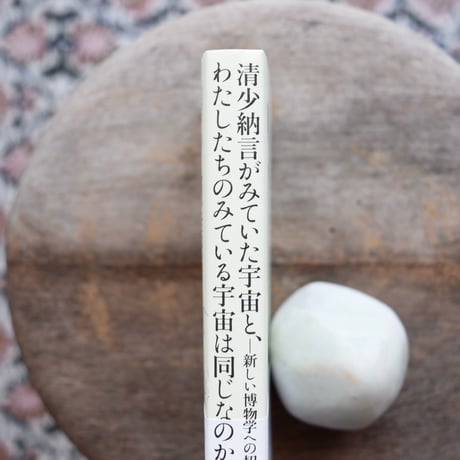 清少納言がみていた宇宙と、
わたしたちのみている宇宙は同じなのか
―新しい博物学への招